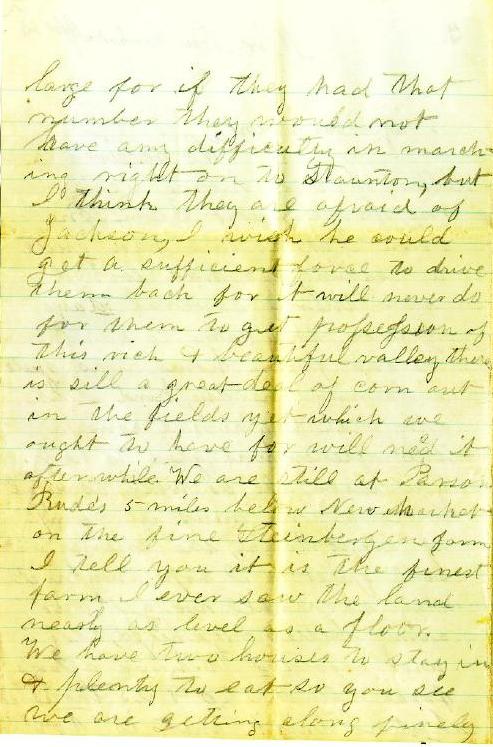 large for if they had that
number they would not
have any difficulty in march-
ing right on to Staunton, but
I think they are afraid of
Jackson, I wish he could
get a sufficient force to drive
them back for it will never do
for them to get possession of
this rich & beautiful valley there
is sill a great deal of corn out
in the fields yet which we
ought to have for will need it
after while. We are still at Parson
Rude's 5 miles below New Market
on the fine Steinbergen farm
I tell you it is the finest
farm I ever saw the land
nearly as level as a floor.
We have two houses to stay in
& plenty to eat so you see
we are getting along finely